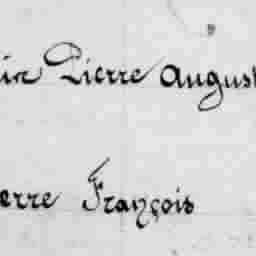 Pierre August
erre François